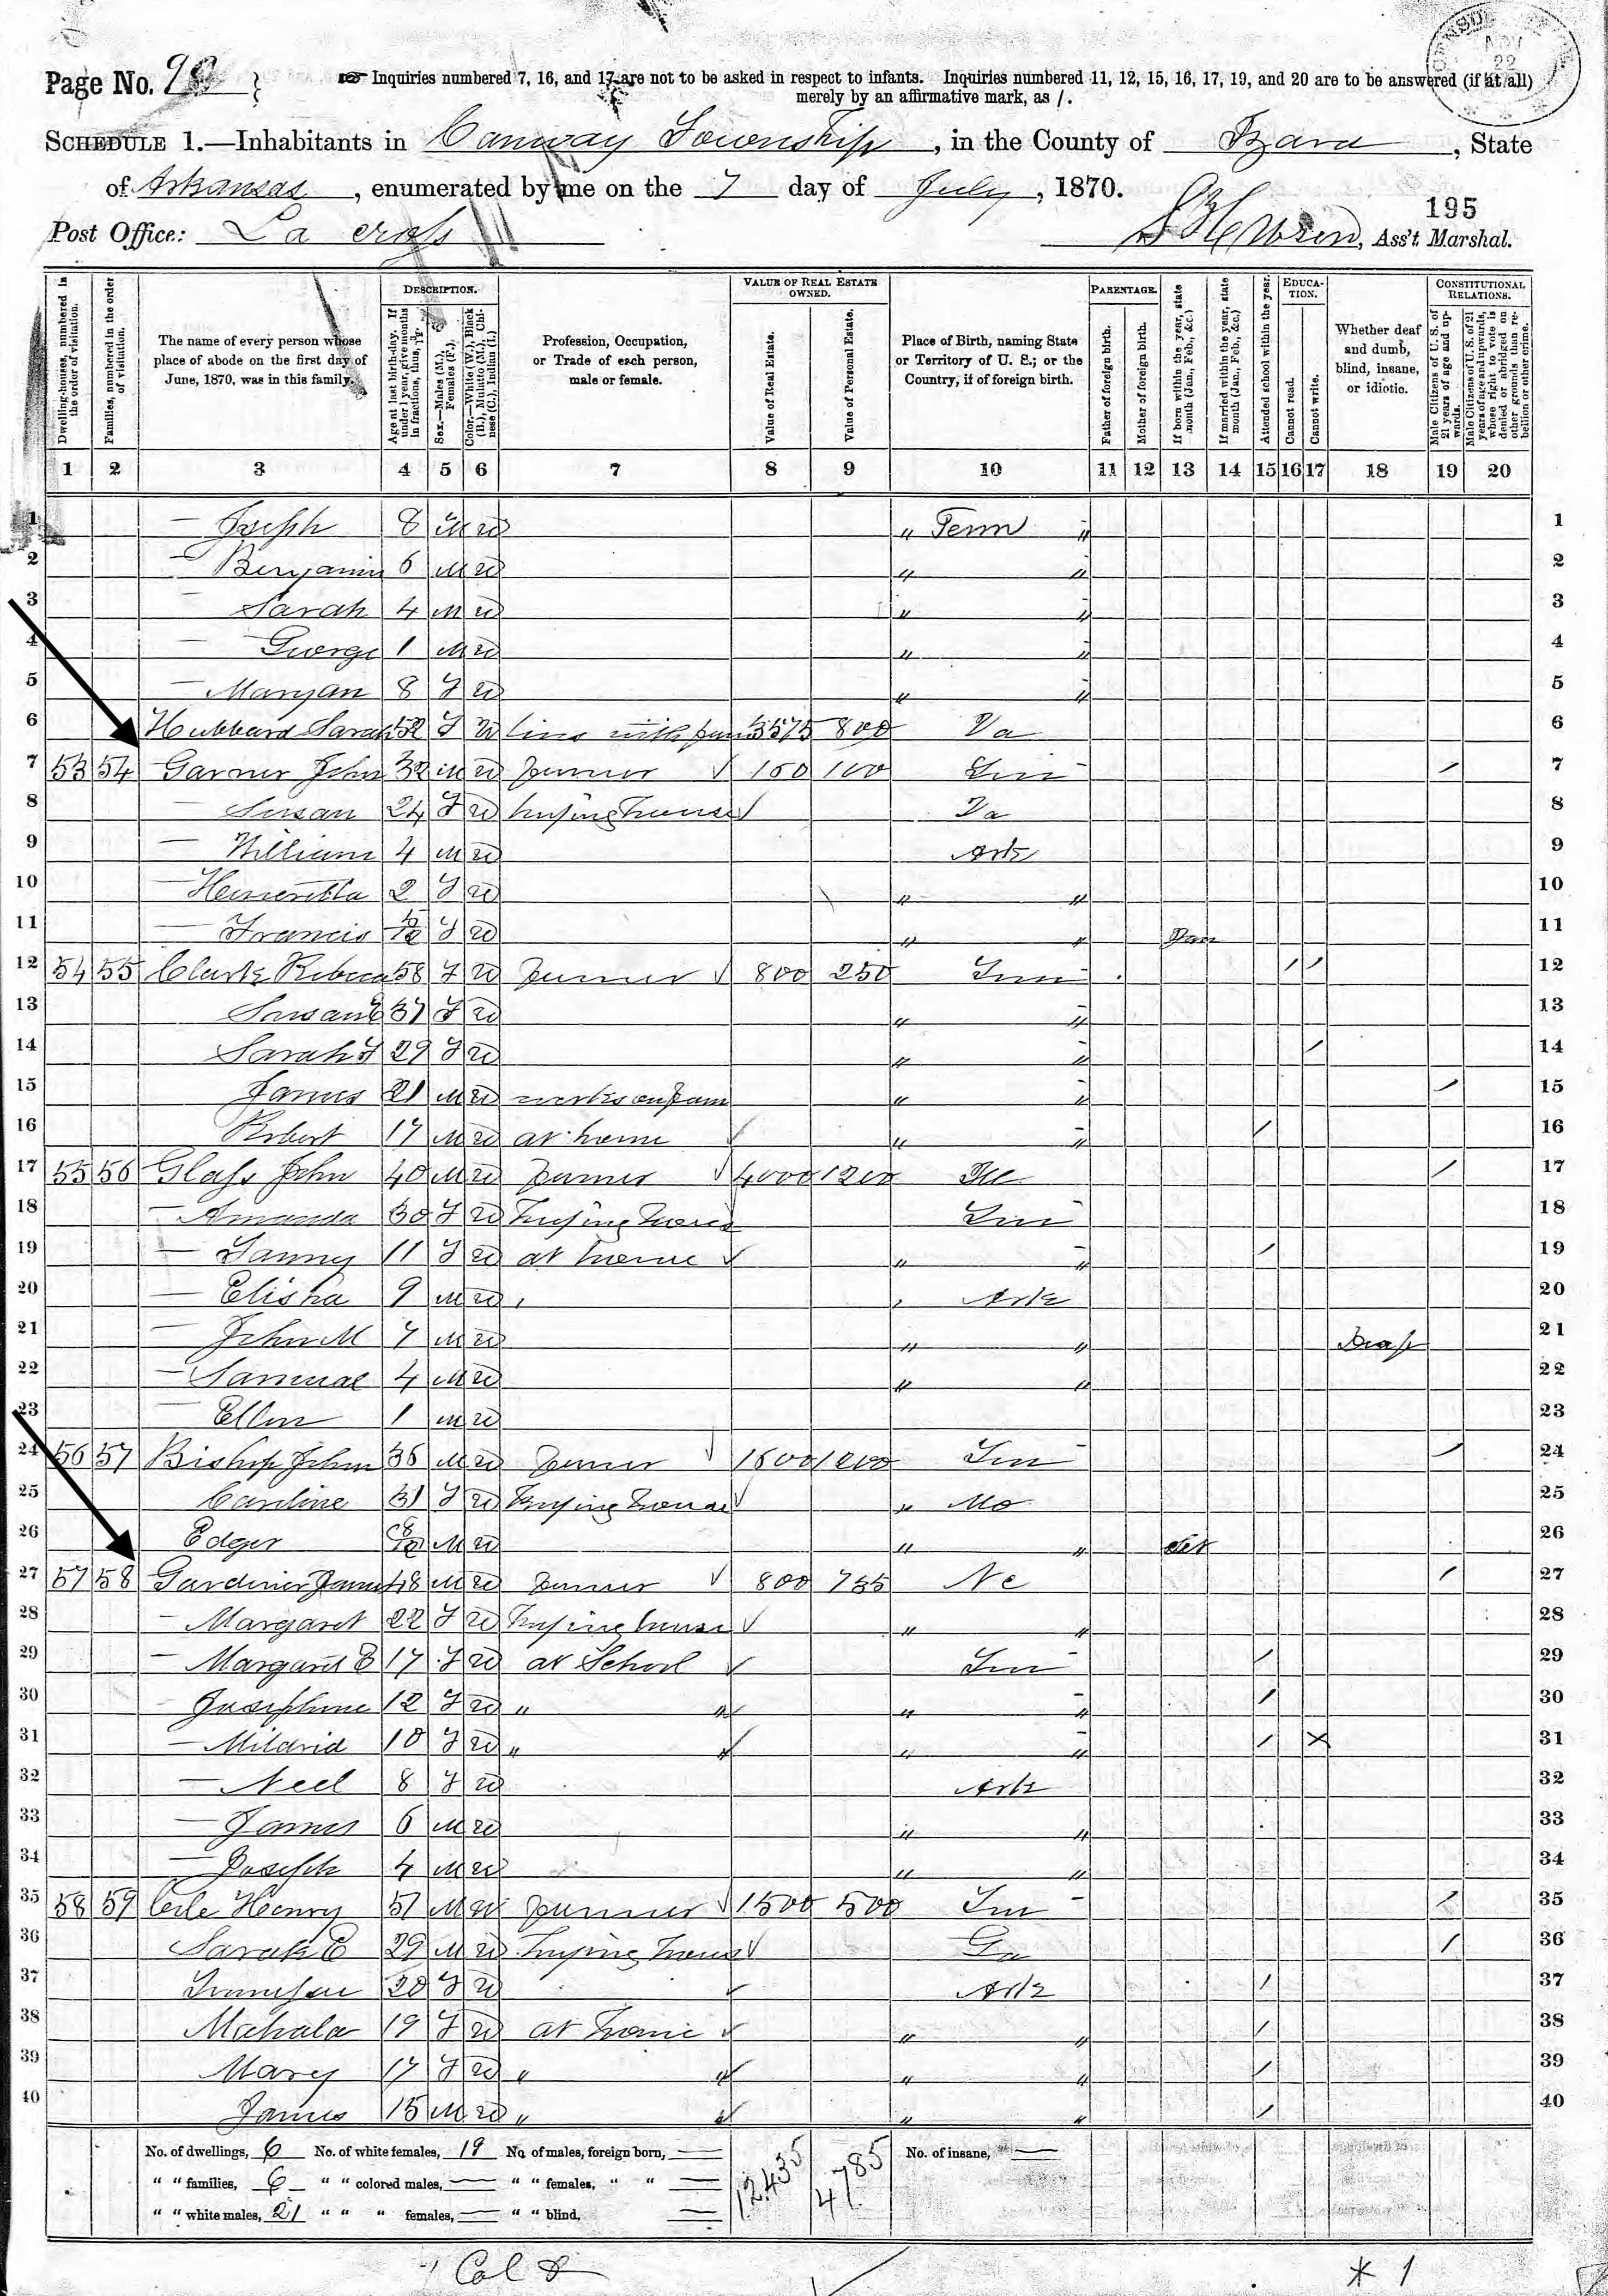 Page No. 90 } ☞ Inquiries numbered 7, 16, and 17 are not to be asked in respect to infants. Inquiries numbered 11, 12, 15, 16, 17, 19, and 20 are to be answered (if at all)
merely by an affirmative mark, as /.
NOV 22
SCHEDULE 1.—Inhabitants in Conway Township, in the County of Izard, State
of Arkansas, enumerated by me on the 7 day of July, 1870.
195
Post Office: La cross Wren, Ass't Marshal.
Dwelling-houses, numbered in the order of visitation.
Families, numbered in the order of visitation.
The name of every person whose place of abode on the first day of June, 1870, was in this family.
DESCRIPTION.
Age at last birth-day. If under 1 year, give months in fractions, thus,
Sex.—Males (M.), Females (F.).
Color.—White (W.), Black (B.), Mulatto (M.), Chinese (C.), Indian (I.)
Profession, Occupation, or Trade of each person, male or female.
VALUE OF REAL ESTATE OWNED.
Value of Real Estate.
Value of Personal Estate.
Place of Birth, naming State or Territory of U. S.; or the Country, if of foreign birth.
PARENTAGE.
Father of foreign birth.
Mother of foreign birth.
If born within the year, state month (Jan., Feb., &c.)
If married within the year, state month (Jan., Feb., &c.)
Attended school within the year.
EDUCATION.
Cannot read.
Cannot write.
Whether deaf and dumb, blind, insane, or idiotic.
CONSTITUTIONAL RELATIONS.
Male Citizens of U. S. of 21 years of age and upwards.
Male Citizens of U. S. of 21 years of age and upwards, whose right to vote is denied or abridged on other grounds than rebellion or other crime.
1 2 3 4 5 6 7 8 9 10 11 12 13 14 15 16 17 18 19 20
1 — Joseph 8 M W " Tenn " 1
2 — Benjamin 6 M W " " 2
3 — Sarah 4 M W " " 3
4 — George 1 M W " " 4
5 — Maryan 8 F W " " 5
6 Hubbard Sarah 52 F W lives with 3575 800 Va 6
7 53 54 Garner John 32 M W Farmer ✓ 150 100 Tenn / 7
8 — Susan 24 F W keeping house ✓ Va 8
9 — William 4 M W Ark 9
10 — Heneritta 2 F W " " 10
11 — Francis 5/12 F W " " Jan 11
12 54 55 Clark Rebeca 58 F W Farmer ✓ 800 250 Tenn / / 12
13 Susan E 37 F W " " 13
14 Sarah F 29 F W " " / 14
15 James 21 M W works on farm " " / 15
16 Robert 17 M W at home ✓ " " / 16
17 55 56 Glass John 40 M W Farmer ✓ 4000 1200 Ill / 17
18 — Amanda 30 F W Keeping house Tenn 18
19 — Fanny 11 F W at home ✓ " " / 19
20 — Elisha 9 M W Ark 20
21 — John M 7 M W " " Deaf 21
22 — Samual 4 M W " " 22
23 Ellen 1 M W 23
24 56 57 Bishop John 36 M W Farmer ✓ 1600 1200 Tenn / 24
25 Caroline 31 F W Keeping house ✓ " Mo 25
26 Edger 8/12 M W " " Oct 26
27 57 58 Gardiner James 48 M W Farmer ✓ 800 735 Nc / 27
28 — Margaret 22 F W Keeping house ✓ " " 28
29 — Margaret E 17 F W at School ✓ Tenn / 29
30 — Josephine 12 F W " " ✓ " " / 30
31 — Mildrid 10 F W " " ✓ " " / X 31
32 — Neel 8 F W Ark 32
33 — James 6 M W " " 33
34 — Joseph 4 M W " " 34
35 58 59 Cole Henry 51 M W Farmer ✓ 1500 500 Tenn / 35
36 Sarah E 29 M W Keeping house ✓ Ga / 36
37 20 F W ✓ Ark / 37
38 Mahala 19 F W at home ✓ " " / 38
39 Mary 17 F W " " " " / 39
40 James 15 M W " " " " / 40
No. of dwellings, 6 No. of white females, 19 No. of males, foreign born, — 12435 4785 No. of insane, —
" " families, 6 " " colored males, — " " females, " " —
" " white males, 21 " " " females, — " " blind, —
Col 8 * 1